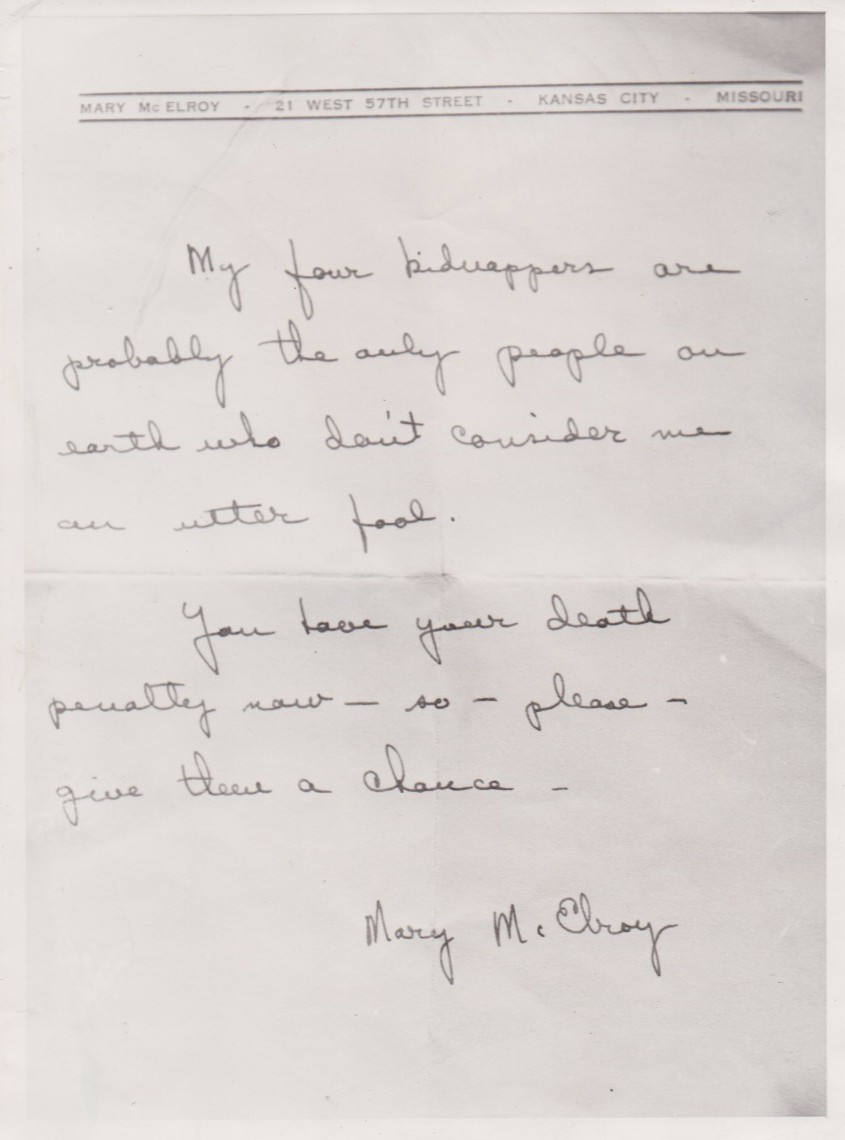 MARY McELROY - 21 WEST 57TH STREET - KANSAS CITY - MISSOURI
My four kidnappers are
probably the only people on
earth who don't consider me
an utter fool.
You have your death
penalty now — so — please —
give them a chance —
Mary McElroy